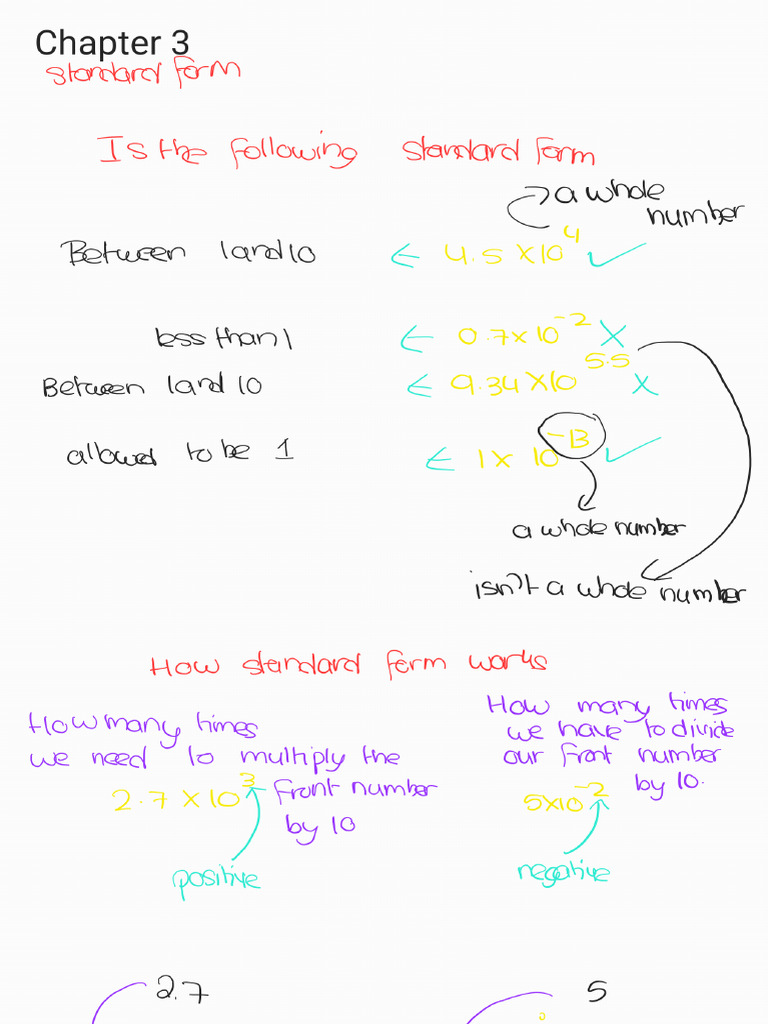 Chapter 3
standard form
Is the following standard form
a whole
number
Between 1 and 10 ← 4.5 × 10⁴ ✓
less than 1 ← 0.7 × 10⁻² ×
Between 1 and 10 ← 9.34 × 10⁵·⁵ ×
allowed to be 1 ← 1 × 10⁻¹³ ✓
a whole number
isn't a whole number
How standard form works
How many times
we need to multiply the
front number
by 10
2.7 × 10³
positive
How many times
we have to divide
our front number
by 10.
5 × 10⁻²
negative
2.7
5